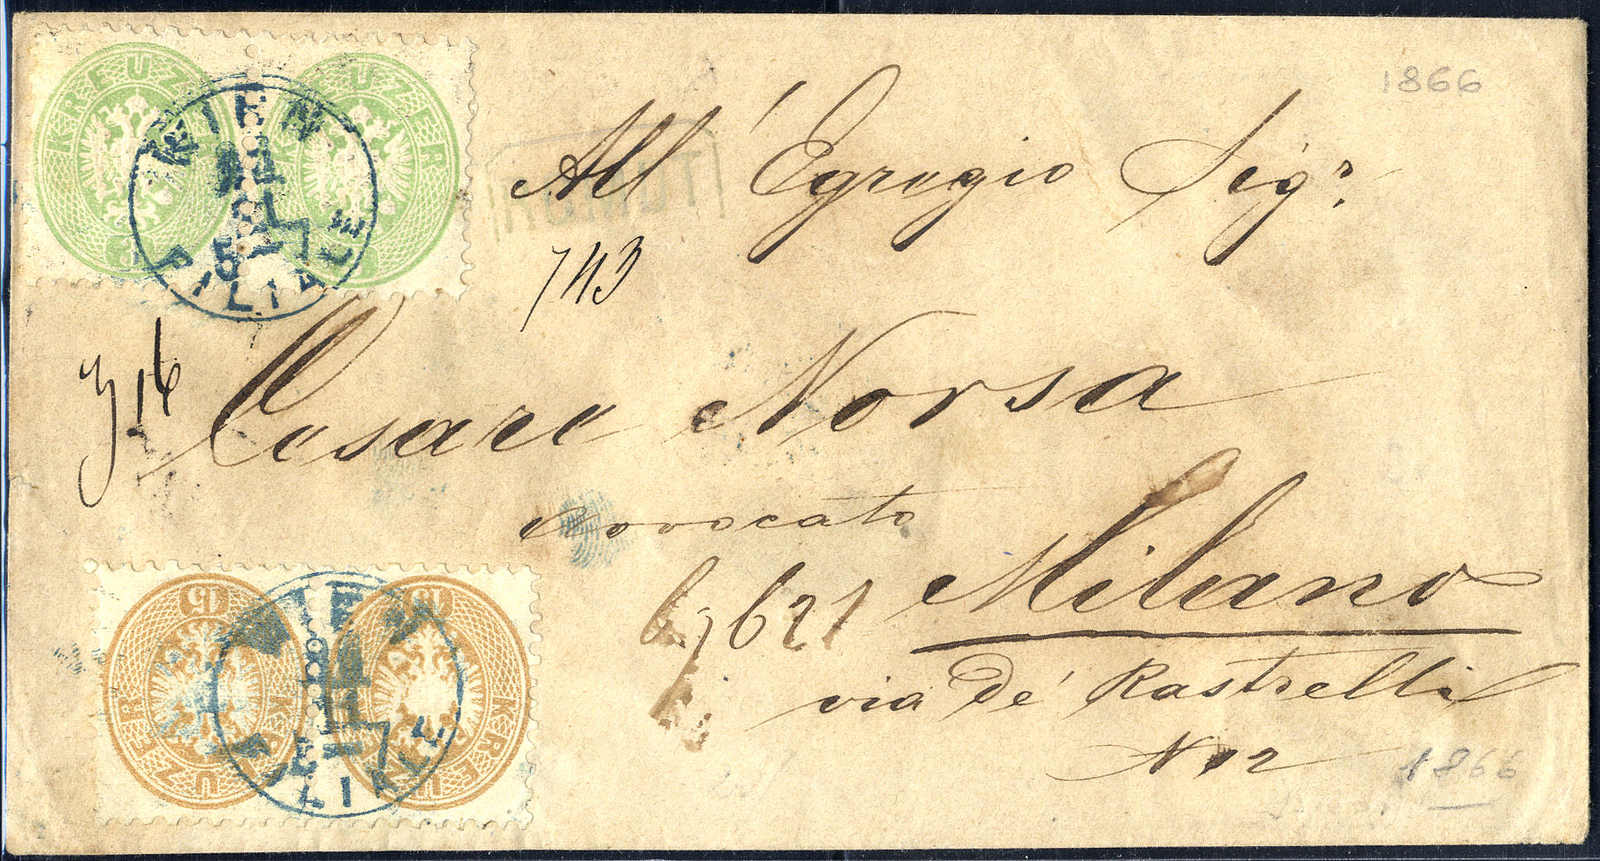 1866
KREUZER
KREUZER
WIEN
FILIALE
All' Egregio Sigr.
743
Cesare Norsa
avvocato
Milano
via de' Rastrelli
N 12
1866
15 KREUZER
15 KREUZER
WIEN
FILIALE